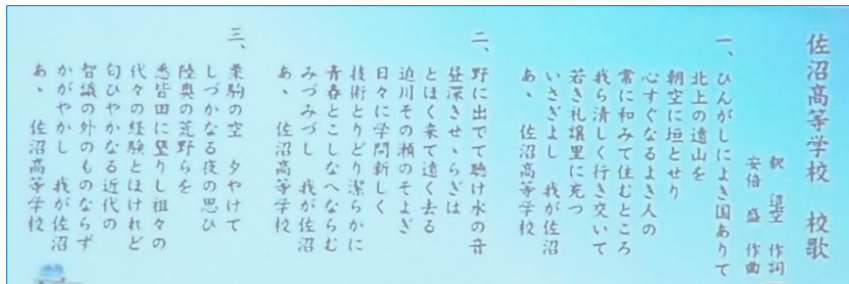 佐沼高等学校 校歌
釈 迢空 作詞
安倍 盛 作曲
一、ひんがしによき国ありて
北上の遠山を
朝空に垣とせり
心すぐなるよき人の
常に和みて住むところ
我ら清しく行き交いて
若き礼譲里に充つ
いさぎよし 我が佐沼
あゝ 佐沼高等学校
二、野に出でて聴け水の音
昼深きせゝらぎは
とほく来て遠く去る
迫川その瀬のそよぎ
日々に学問新しく
技術とりどり潔らかに
青春とこしなへならむ
みづみづし 我が佐沼
あゝ 佐沼高等学校
三、栗駒の空 夕やけて
しづかなる夜の思ひ
陸奥の荒野らを
悉皆田に墾りし祖々の
代々の経験とほけれど
匂ひやかなる近代の
智識の外のものならず
かがやかし 我が佐沼
あゝ 佐沼高等学校